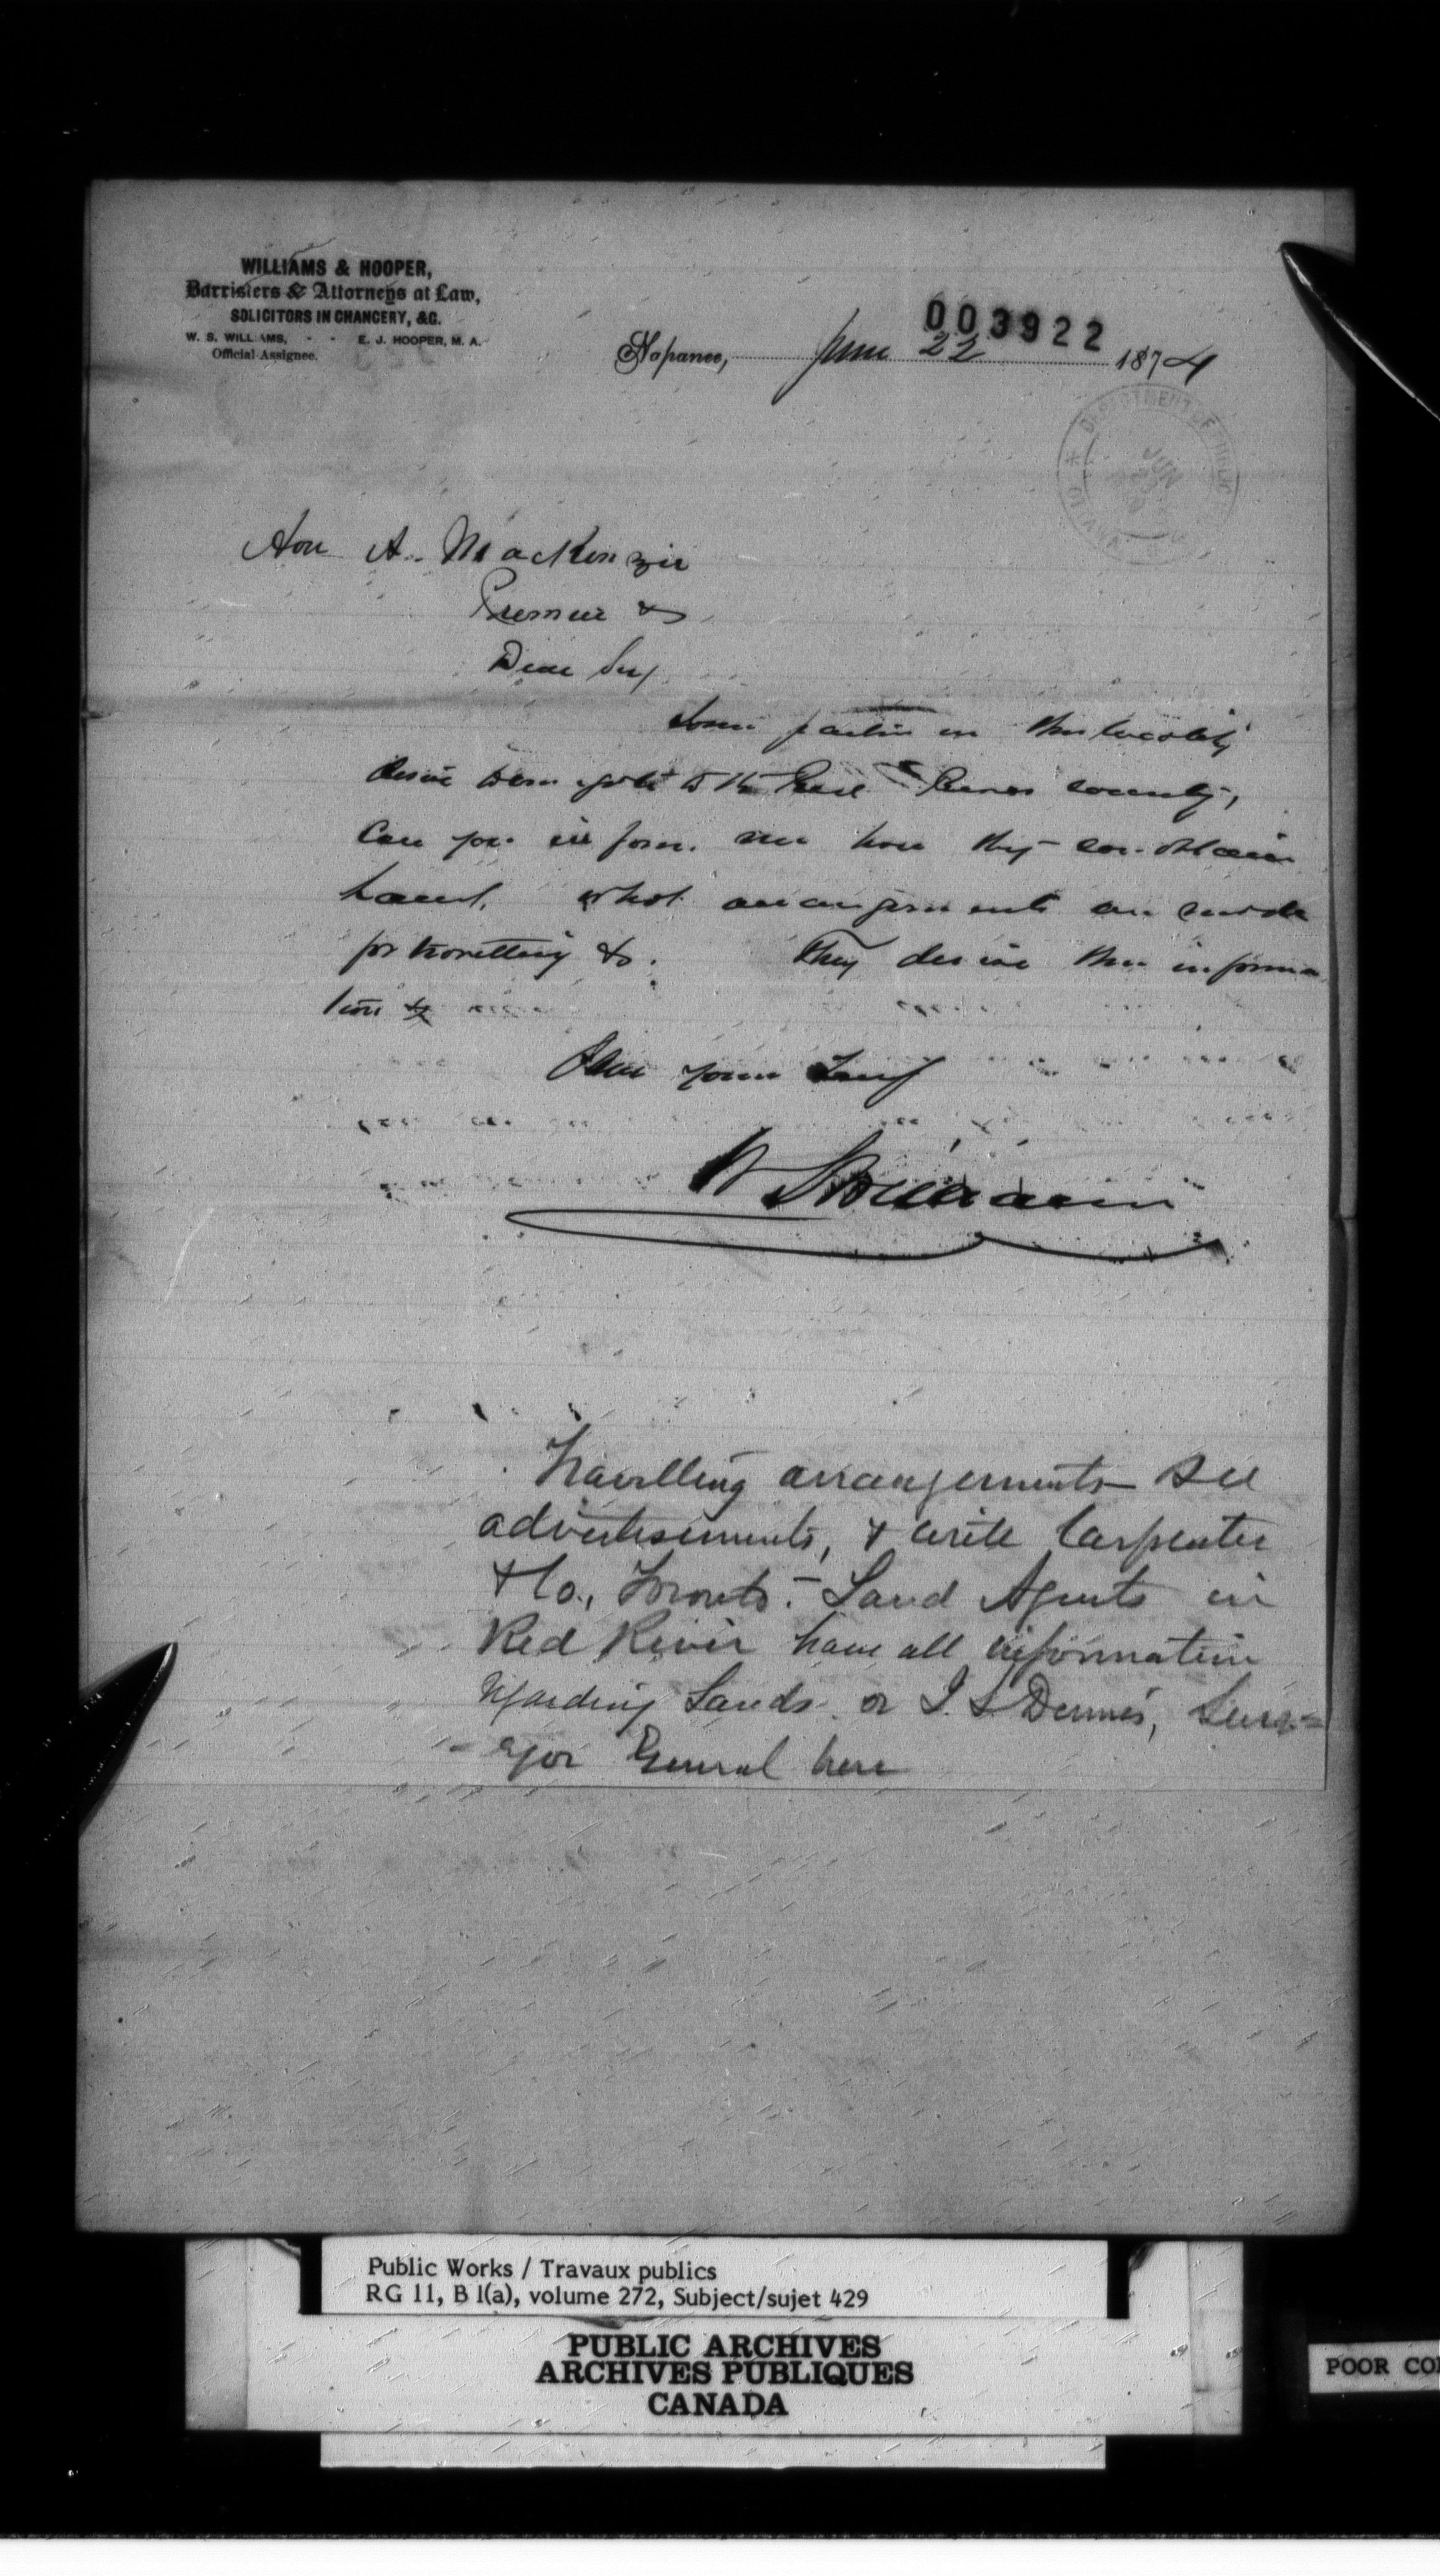 WILLIAMS & HOOPER,
Barristers & Attorneys at Law,
SOLICITORS IN CHANCERY, &C.
W. S. WILLIAMS, - - E. J. HOOPER, M. A.
Official Assignee.
003922
Napanee, June 22 1874
DEPARTMENT OF PUBLIC
JUN
Hon A. MacKenzie
Premier &
Dear Sir,
Some parties in this locality
desire to emigrate to the Red River country,
Can you inform me how they can obtain
land, what arrangements are made
for travelling &c. They desire this informa
tion &
yours truly
W S Williams
Travelling arrangements - see
advertisements, & write Carpenter
& Co., Toronto. - Land Agents in
Red River have all information
regarding Lands. or J. S. Dennis, Surv-
-eyor General here
Public Works / Travaux publics
RG 11, B 1(a), volume 272, Subject/sujet 429
PUBLIC ARCHIVES
ARCHIVES PUBLIQUES
CANADA
POOR CO